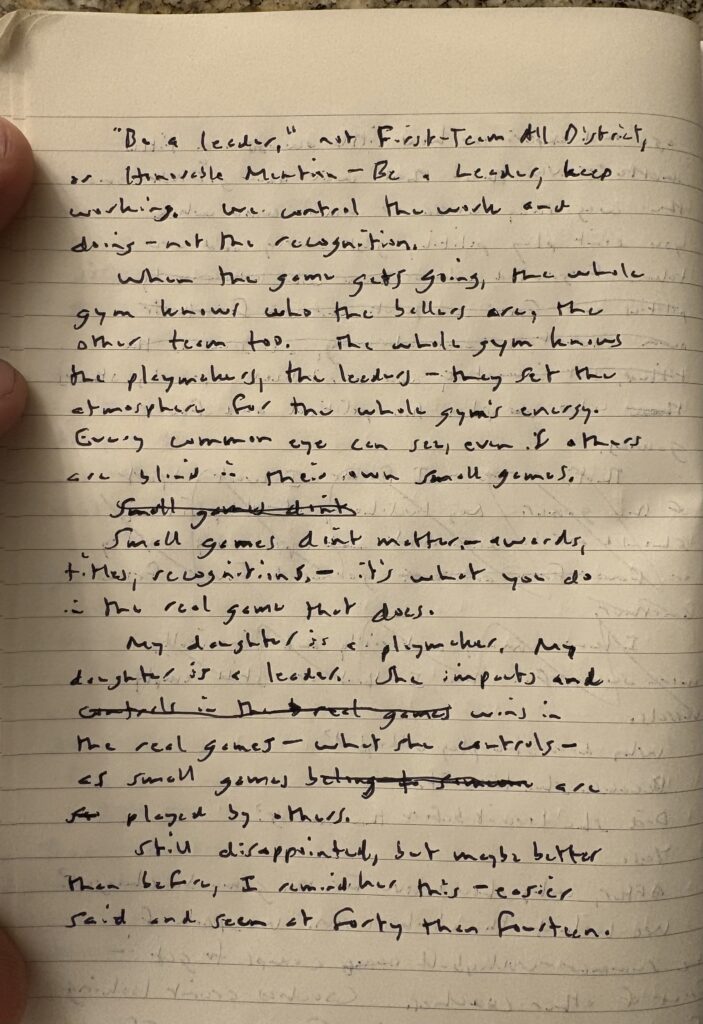 "Be a leader," not First-Team All District,
or Honorable Mention - Be a Leader, keep
working. We control the work and
doing - not the recognition.
When the game gets going, the whole
gym knows who the ballers are, the
other team too. The whole gym knows
the playmakers, the leaders - they set the
atmosphere for the whole gym's energy.
Every common eye can see, even if others
are blind in their own small games.
Small games dint
Small games dint matter - awards,
titles, recognitions, - it's what you do
in the real game that does.
My daughter is a playmaker. My
daughter is a leader. She impacts and
controls in the real games wins in
the real games - what she controls -
as small games belong to someone are
played by others.
Still disappointed, but maybe better
than before, I remind her this - easier
said and seem at forty than fourteen.